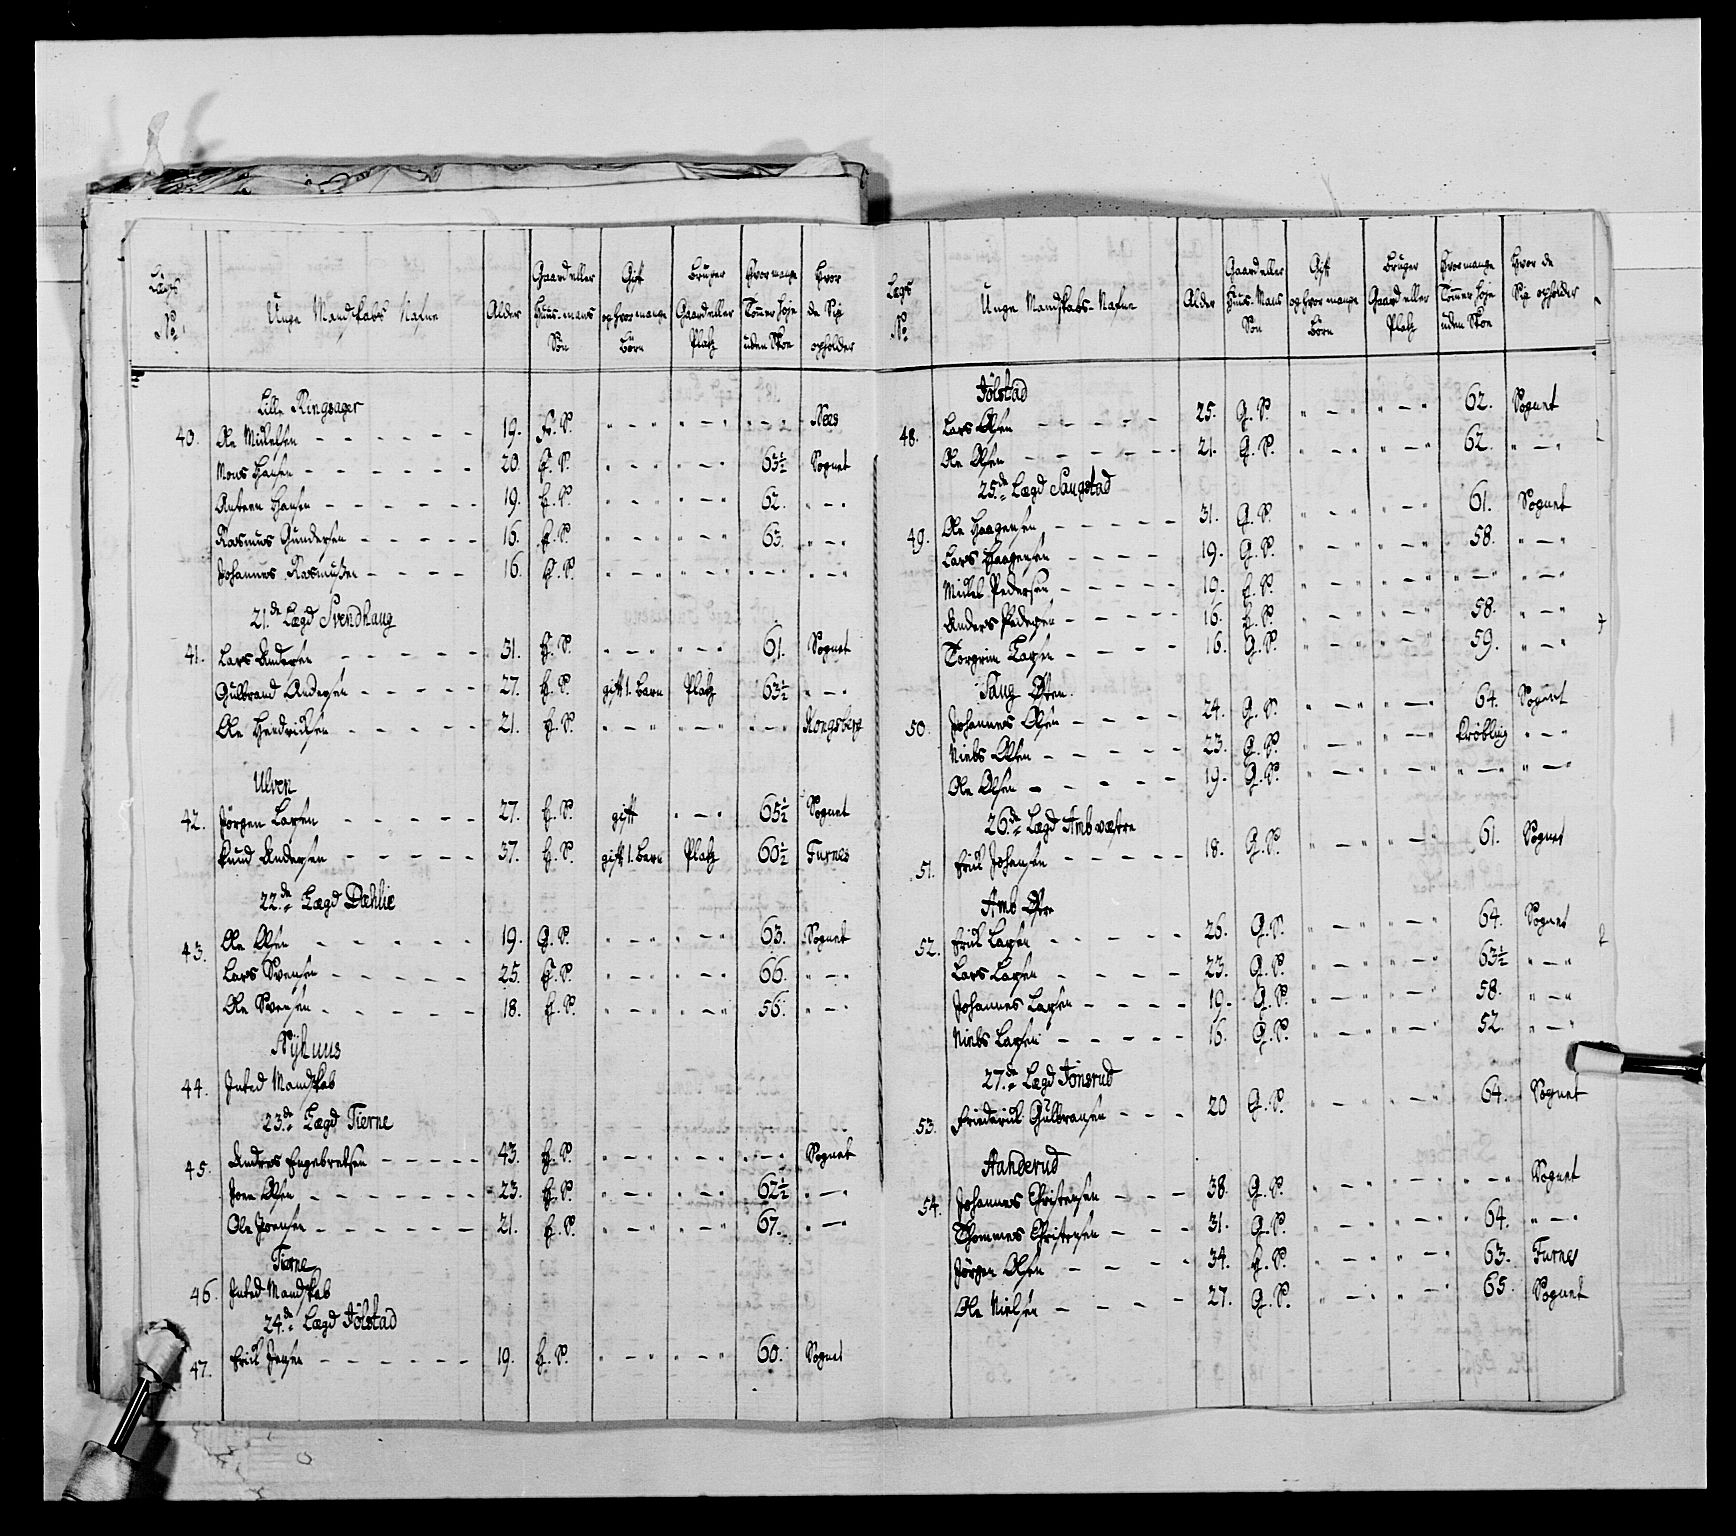 Lægs No | Unge Mandskabs Nafne | Alder | Gaard eller Huus-mans Søn | Gift og hvor mange Børn | Bruger Gaard eller Platz | Hvor mange Tomer høje uden Skoe | Hvor de Sig opholder
Lille Ringsager
40. Ole Mikelsen – – – – – – 19. H. S. " – " " – " " – " Næs
Mons Hansen – – – – – 20. H. S. " – " " – " 63½ Sognet
Anteen Hansen – – – – – – 19. H. S. " – " " – " 62. " – "
Rasmus Gundersen – – – – – 16. H. S. " – " " – " 63. " – "
Johannes Rasmusen – – – – 16. H. S. " – " " – " " – " " – "
21.de Lægd Svendhaug
41. Lars Andersen – – – – – 31. H. S. " – " " – " 61. Sognet
Gulbrand Andersen – – – – 27. H. S. gift 1. Barn Platz 63½ " – "
Ole Hendrichsen – – – – 21. H. S. " – " " – " " – " Kongsberg
Ulven
42. Jørgen Larsen – – – – – 27. H. S. gift " – " 65½ Sognet
Knud Andersen – – – – – 37. H. S. gift 1. Barn Platz 60½ Furnes
22.de Lægd Dæhlie
43. Ole Olsen – – – – – 19. G. S. " – " " – " 63. Sognet
Lars Svensen – – – – – 25. H. S. " – " " – " 66. " – "
Ole Svensen – – – – – 18. H. S. " – " " – " 56. " – "
Nyhuus
44. Inted Mandskab
23.de Lægd Tierne
45. Andres Engebretsen – – – – – 43. H. S. " – " " – " " – " Sognet
Joen Olsen – – – – – – 23. H. S. " – " " – " 62½ " – "
Ole Joensen – – – – – – 21. H. S. " – " " – " 67. " – "
Tierne
46. Inted Mandskab
24.de Lægd Jølstad
47. Erick Jensen – – – – – – 19. H. S. " – " " – " 60. Sognet
Lægs No | Unge Mandskabs-Nafne | Alder | Gaard eller Huus-Mans Søn | Gift og hvor mange Børn | Bruger Gaard eller Platz | Hvor mange Tomer høje uden Skoe | Hvor de Sig opholder
Jølstad
48. Lars Olsen – – – – – 25. G. S. " – " " – " 62. Sognet
Ole Olsen – – – – – – 21. G. S. " – " " – " 62. " – "
25.de Lægd Saugstad
49. Ole Haagensen – – – – – 31. G. S. " – " " – " 61. Sognet
Lars Haagensen – – – – 19. G. S. " – " " – " 58. " – "
Mikel Pedersen – – – – – 19. H. S. " – " " – " " – " " – "
Anders Pedersen – – – – 16. H. S. " – " " – " 58. " – "
Torgrim Larsen – – – – 16. G. S. " – " " – " 59. " – "
Saug Øvren
50. Johannes Olsen – – – – 24. G. S. " – " " – " 64. Sognet
Niels Olsen – – – – – 23. G. S. " – " " – " Krøbling " – "
Ole Olsen – – – – 19. G. S. " – " " – " " – " " – "
26.de Lægd Amb væstre
51. Erick Johansen – – – – – 18. G. S. " – " " – " 61. Sognet
Amb Østre
52. Erick Larsen – – – – – 26. G. S. " – " " – " 64. Sognet
Lars Larsen – – – – 23. G. S. " – " " – " 63½ " – "
Johannes Larsen – – – – 19. G. S. " – " " – " 58. " – "
Niels Larsen – – – – – 16. G. S. " – " " – " 52. " – "
27.de Lægd Jonsrud
53. Friederick Gulbransen – – – 20 G. S. " – " " – " 64. Sognet
Aanderud
54. Johannes Christensen – – – 38. G. S. " – " " – " " – " Sognet
Thommes Christensen – – – 31. G. S. " – " " – " 64. " – "
Jørgen Olsen – – – – 34. H. S. " – " " – " 63. Furnes
Ole Nielsen – – – – 27. G. S. " – " " – " 65. Sognet